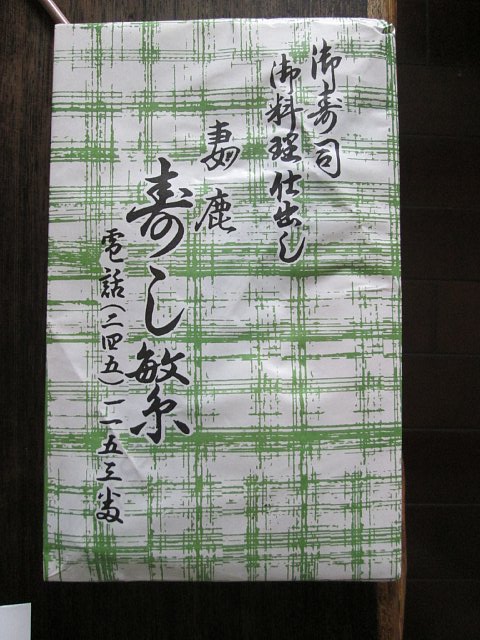 御寿司
御料理仕出し
妻鹿
寿し繁
電話(二四五)一一五三番